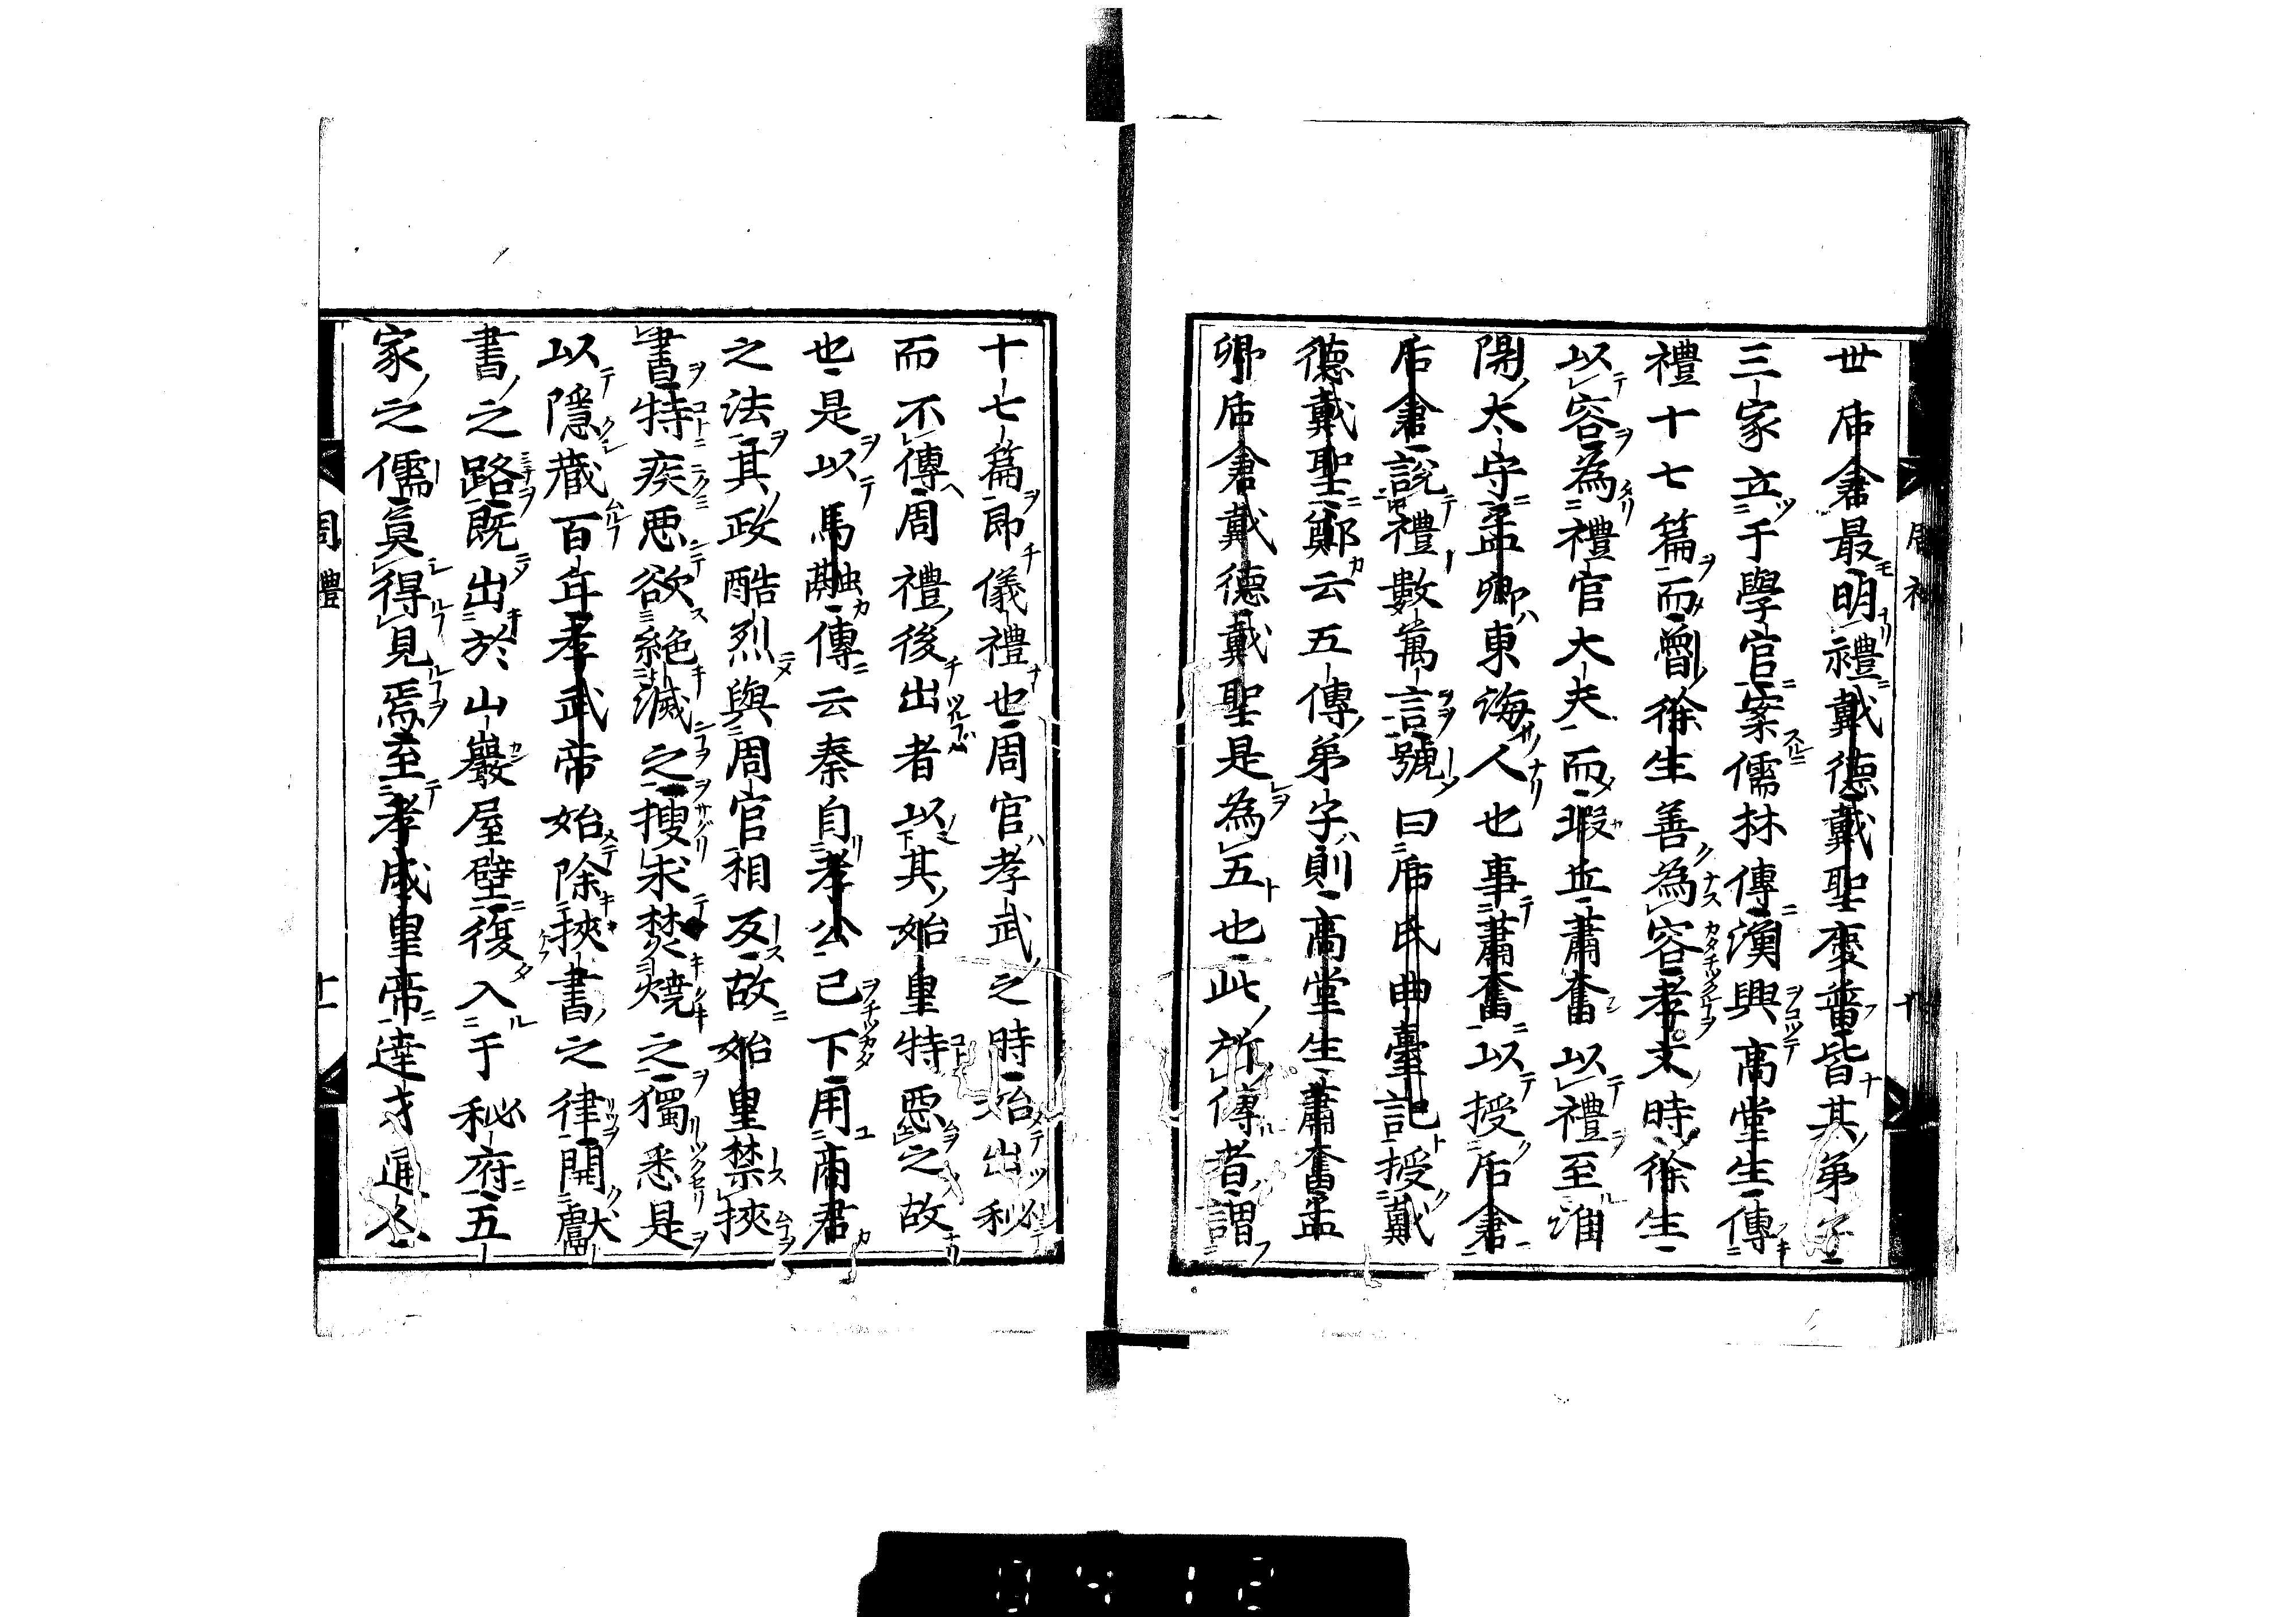 世后倉最明禮戴德戴聖慶普皆其弟子
三家立于學官案儒林傳漢興高堂生傳
禮十七篇而魯徐生善為容孝文時徐生
以容為禮官大夫而瑕丘蕭奮以禮至淮
陽太守孟卿東海人也事蕭奮以授后倉
后倉說禮數萬言號曰后氏曲臺記授戴
德戴聖鄭云五傳弟字則高堂生蕭奮孟
卿后倉戴德戴聖是為五也此所傳者謂
十七篇即儀禮也周官孝武之時始出秘
而不傳周禮後出者以其始皇特惡之故
也是以馬融傳云秦自孝公已下用商君
之法其政酷烈與周官相反故始皇禁挾
書特疾惡欲絕滅之搜求焚燒之獨悉是
以隱藏百年孝武帝始除挾書之律開獻
書之路既出於山巖屋壁復入于秘府五
家之儒莫得見焉至孝成皇帝達才通人
周禮
十一
0412